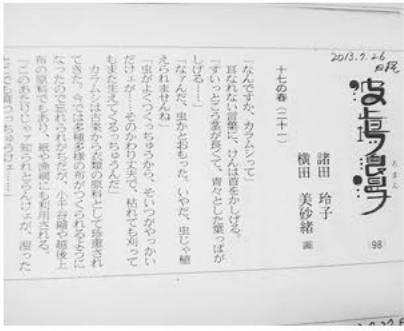 2013.7.26
日経
波止場浪漫
ろまん
98
諸田 玲子
横田 美砂緒 画
十七の春(二十一)
「なんですか、カラムシって」
耳なれない言葉に、けんは首をかしげる。
「すいっとこう茎が長くて、青々とした葉っぱが
しげる……」
「なァんだ、虫かとおもった。いやだ、虫じゃ植
えられませんね」
「虫がよくつくっちゅうから、そいつがやっかい
だけェが……そのかわり丈夫で、枯れても刈って
もまた生えてくるっちゅうんだ」
カラムシは古来から衣類の原料として珍重され
てきた。今では多種多様な布がつくられるように
なったので忘れられがちだが、小千谷縮や越後上
布の原料でもあり、紙や漁網にも利用される。
「このあたりじゃ、知らん けェが、湿った
でも育つっちゅうけェ……」